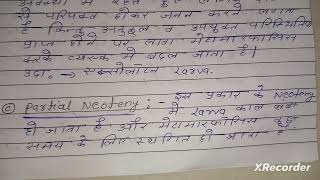 से परिपक्व होकर जनन करने लगता
है किन्तु अनुकूल व उपयुक्त परिस्थितियां
प्राप्त होने पर लार्वा मेटामार्फोसिस
करके व्यस्क में बदल जाता है।
उदा० :- एक्सोलोटल Larva.
© Partial Neoteny : - इस प्रकार के Neoteny
में Larva काल लंबा
हो जाता है और मेटामार्फोसिस कुछ
समय के लिए स्थगित हो जाता है
XRecorder